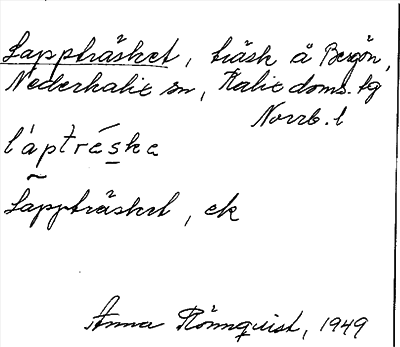 Lappträsket, träsk å Bergön,
Nederkalix sn, Kalix doms. tg
Norrb. l
l'aptrések̬e
Lappträsket, ek
Anna Rönnquist, 1949